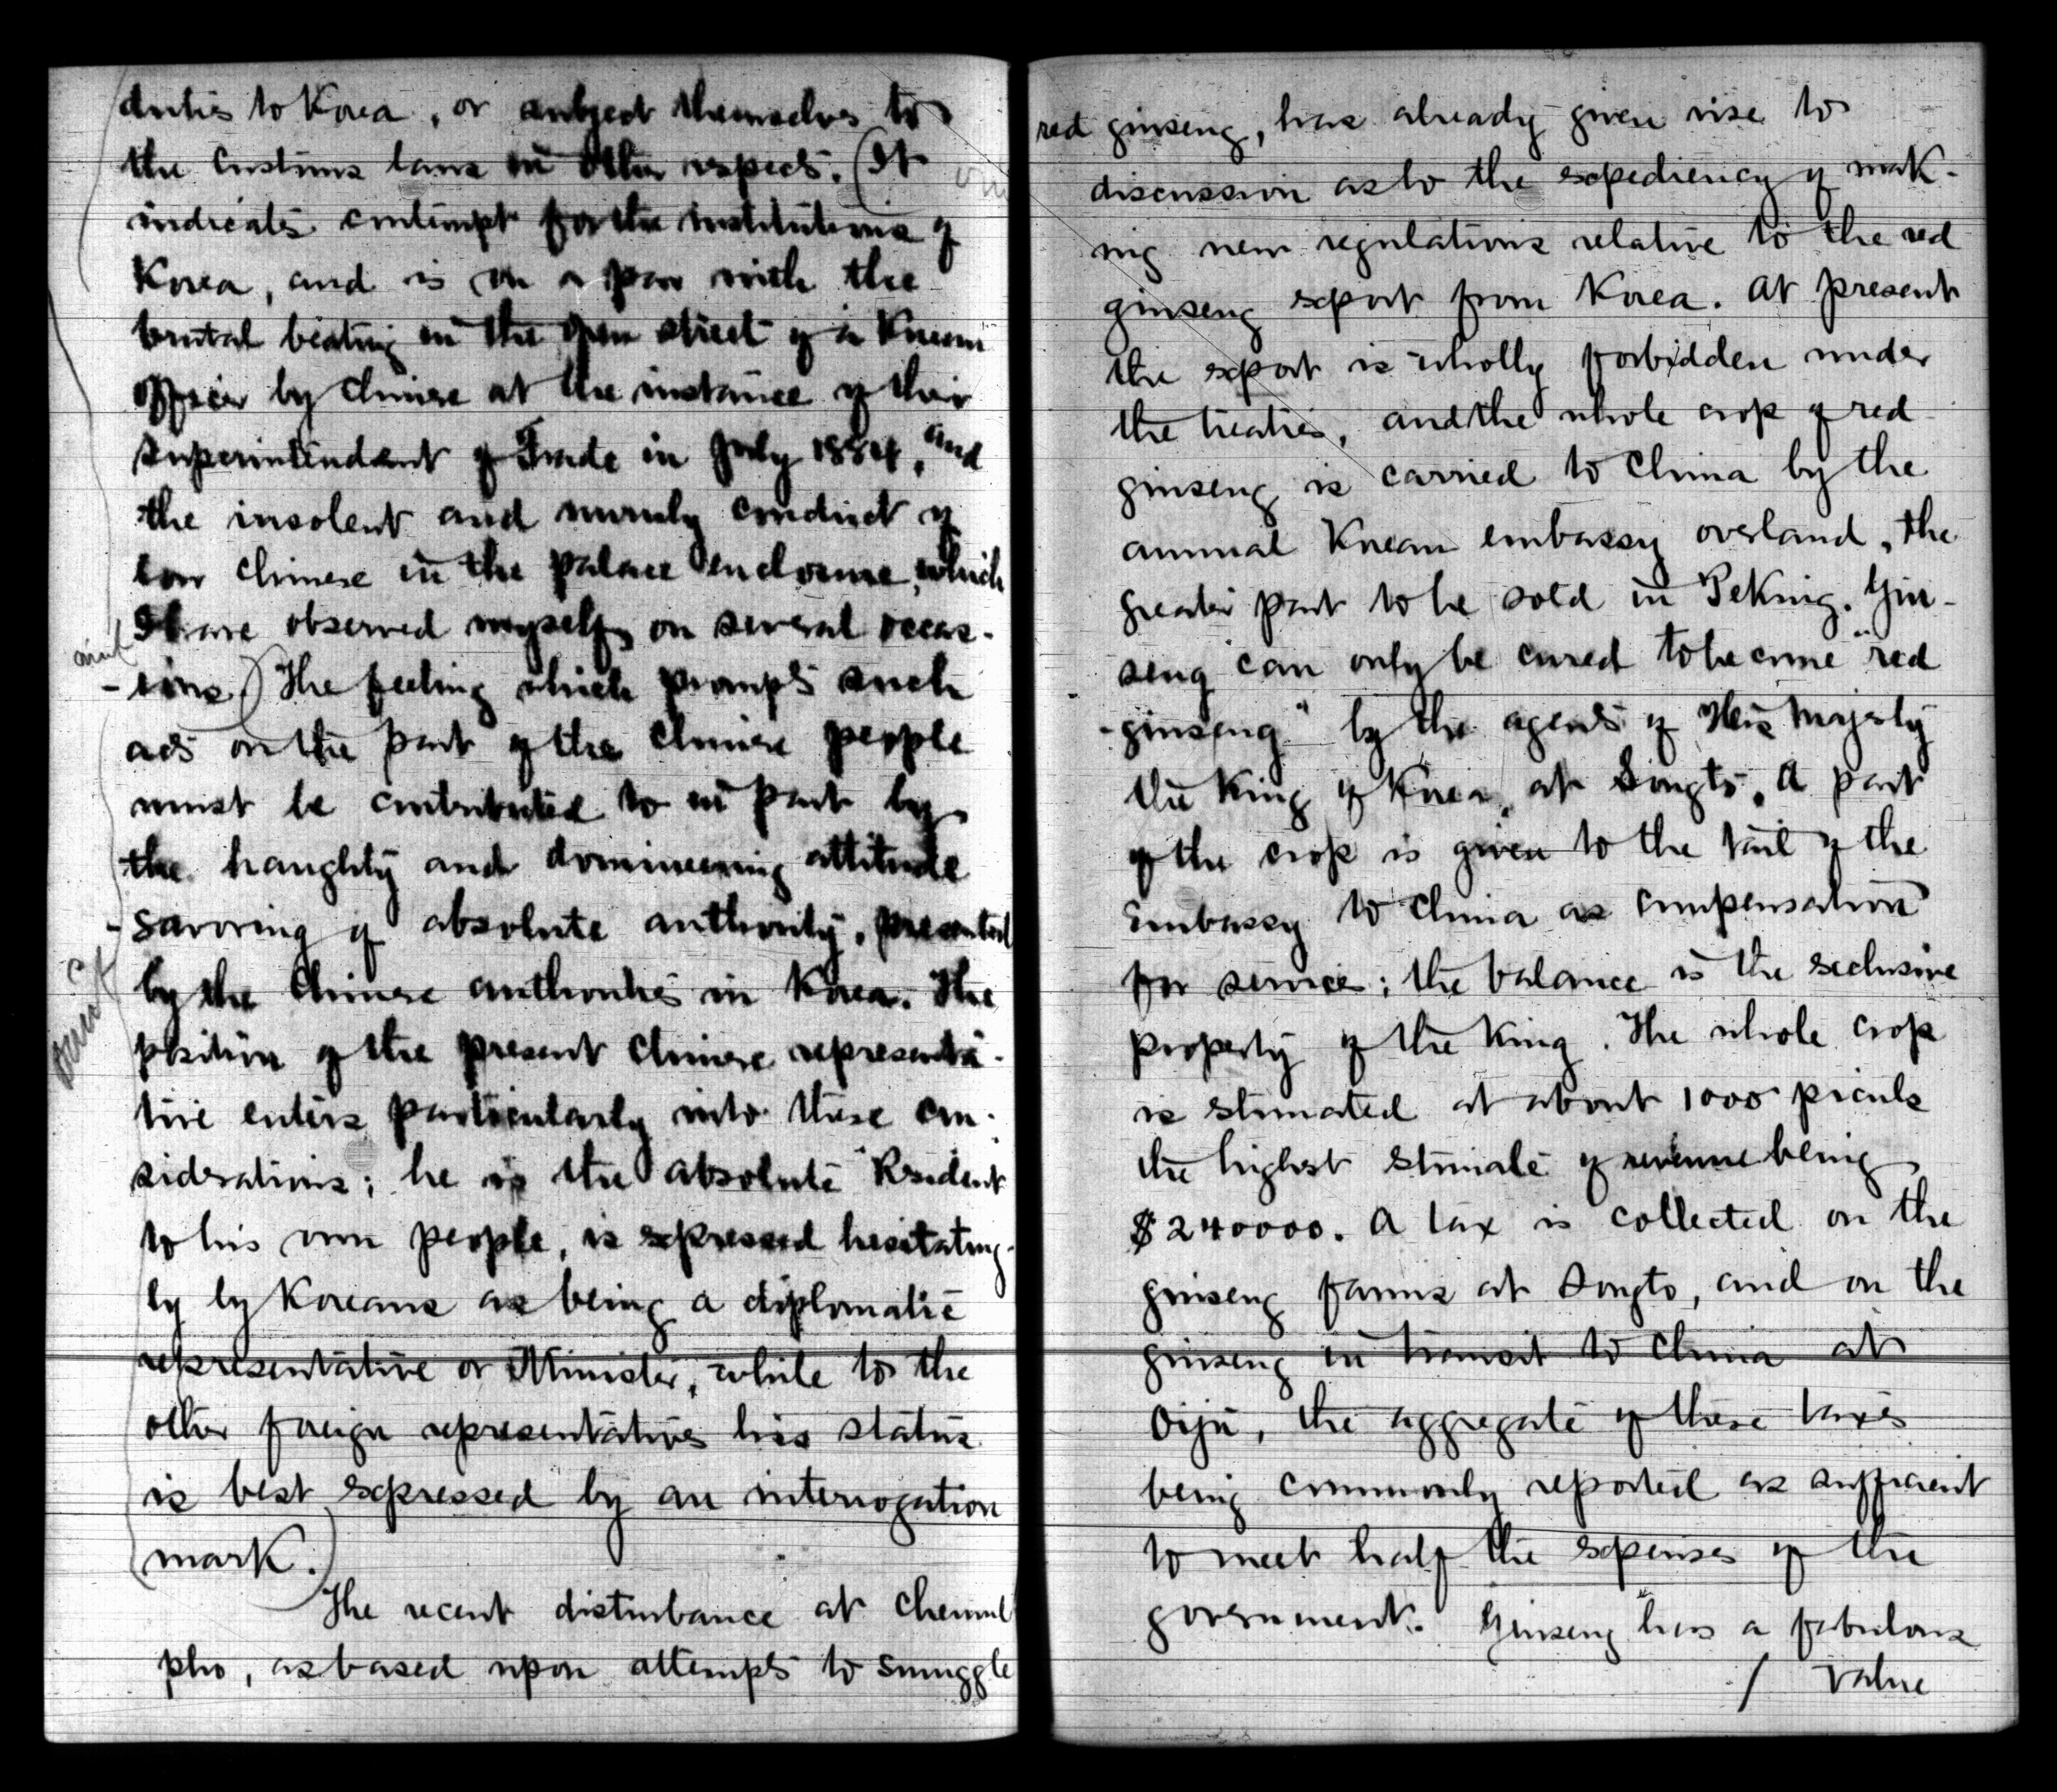 duties to Korea, or subject themselves to
the Customs laws in other respects. (It
indicates contempt for the institutions of
Korea, and is on a par with the
brutal beating in the open street of a Korean
officer by Chinese at the instance of their
Superintendent of Trade in July 1884, and
the insolent and unruly conduct of
low Chinese in the palace enclosure, which
I have observed myself, on several occas-
omit
-ions.) The feeling which prompts such
acts on the part of the Chinese people
must be contributed to in part by
the haughty and domineering attitude
savoring of absolute authority, presented
by the Chinese authorities in Korea. The
omit
position of the present Chinese representa-
tive enters particularly into these con-
siderations; he is the absolute "Resident
to his own people, is expressed hesitating-
ly by Koreans as being a diplomatic
representative or Minister, while to the
other foreign representatives his status
is best expressed by an interrogation
mark.)
The recent disturbance at Chemul
pho, as based upon attempts to smuggle
red ginseng, has already given rise to
discussion as to the expediency of mak-
ing new regulations relative to the red
ginseng export from Korea. At present
the export is wholly forbidden under
the treaties, and the whole crop of red
ginseng is carried to China by the
annual Korean embassy overland, the
greater part to be sold in Peking. Gin-
seng can only be cured to become "red
-ginseng" by the agents of His Majesty
the King of Korea, at Songto. A part
of the crop is given to the suit of the
Embassy to China as compensation
for service; the balance is the exclusive
property of the King. The whole crop
is estimated at about 1000 piculs
the highest estimate of revenue being
$240000. A tax is collected on the
ginseng farms at Songto, and on the
ginseng in transit to China at
Oiju, the aggregate of these taxes
being commonly reported as sufficient
to meet half the expenses of the
government. Ginseng has a fabulous
/ value